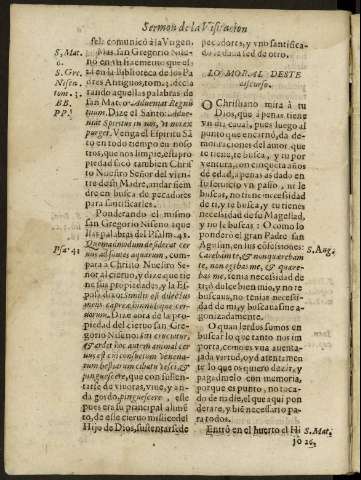 Sermon de la Visitacion
se la comunicó à la Virgen.
Mas san Gregorio Niseno
en su
en la Biblioteca de los Pa
dres Antiguos, tom. 3. decla
rando aquellas palabras de
san Mat. 6. Adueniat Regnũ
tuum. Dize el Santo: Adue-
niat Spiritus in nos, & nos ex
purget. Venga el Espiritu Sã
to en todo tiempo en noso
tros, que nos limpie, està pro
piedad sacò tambien Chris
to Nuestro Señor del vien
tre de su Madre, andar siem
dre en busca de pecadores
para santificarles.
Ponderando el mismo
san Gregorio Niseno aque
llas palabras del Psalm. 41.
Quemadmodum desiderat cer
uus ad fontes aquarum, com-
para à Christo Nuestro Se
ñor al cieruo, y dize que tie
ne sus propiedades, y la Es
posa dixo: similis est dilectus
meus capreæ, hinnuloque cer-
uorum. Dize aora de la pro
piedad del cieruo san Gre-
gorio Niseno:
& ardet hoc autem animal cer
uus est consuetum venena-
tarum bestiarum cibatu vesci, &
pinguescere, que con susten-
tarse de viuoras, viue, y an-
da gordo, pinguescere, este
pues era su principal alimẽ
to, de este cieruo mistico del
Hijo de Dios, sustentarse de
S. Mat.
6.
S. Gre.
Nisen.
tom. 3.
BB.
PP.
Psa. 41
pecadores, y vno santifica-
do le daua sed de otro.
LO MORAL DESTE
discurso.
O Christiano mira à tu
Dios, que apenas tiene
vn dia cabal, pues luego al
punto que encarnò, da de-
monstraciones del amor que
te tiene, te busca, y tu por
ventura, con cinquenta años
de edad, apenas as dado en
su seruicio vn passo, ni le
buscas, no tiene necessidad
de ti, y te busca, y tu tienes
necessidad de su Magestad,
y no le buscas. O como lo
pondero el gran Padre san
Agustin, en sus confessiones:
Carebam te, & non quærebam
te, non egebas me, & quære-
bas me, tenia necessidad de
ti, ò dulce bien mio, y no te
buscaua, no tenias necessi-
dad de mi, y buscauasme a-
gonizadamente.
O quan lerdos somos en
buscar lo que tanto nos im
porta, como es vna auenta-
jada virtud, oyd atentamen-
te lo que os quiero dezir, y
pagadmelo con memoria,
porque es punto, no tocado
de nadie, el que aqui pon
derare, y bien necessario pa
ra todos.
Entrò en el huerto el Hi
jo
S. Aug.
S. Mat.
26.